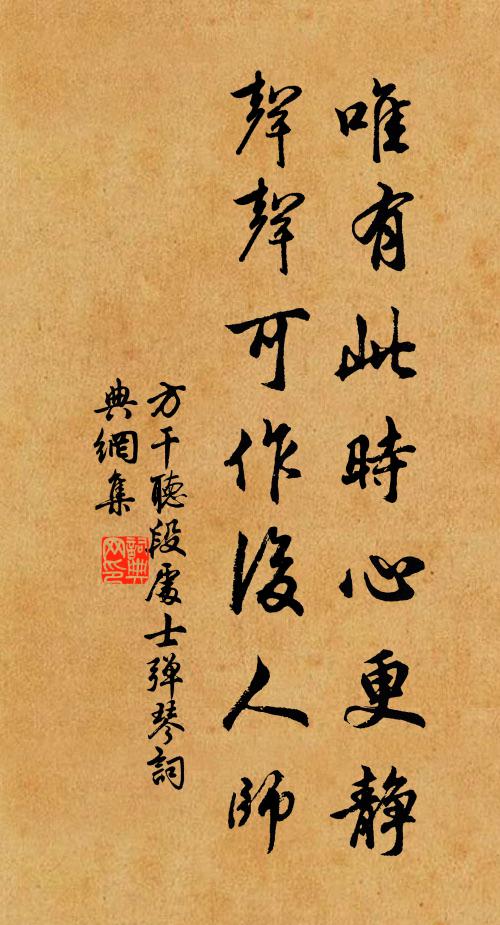 唯有此時心更静
聲聲可作後人師
方干聽段處士彈琴詞
典網集
詞典網印